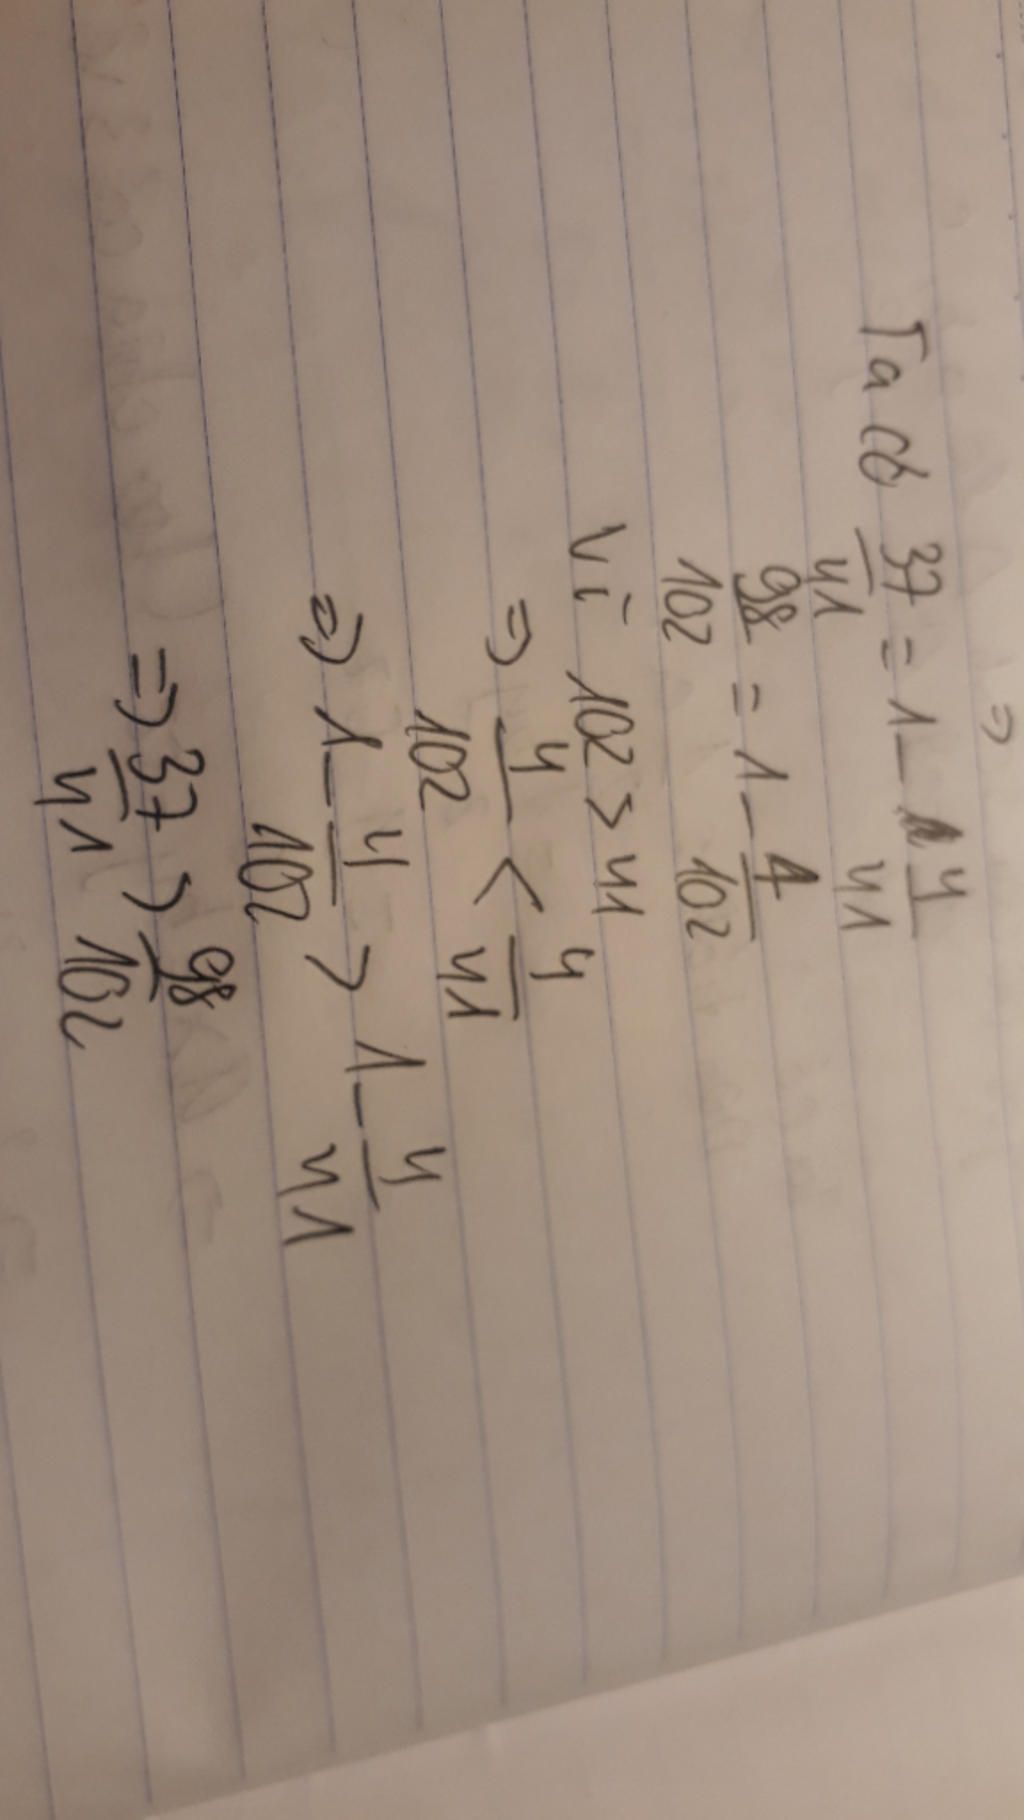 ⇒
Ta có 37/41 = 1 - 4/41
98/102 = 1 - 4/102
Vì 102 > 41
⇒ 4/102 < 4/41
⇒ 1 - 4/102 > 1 - 4/41
⇒ 37/41 > 98/102